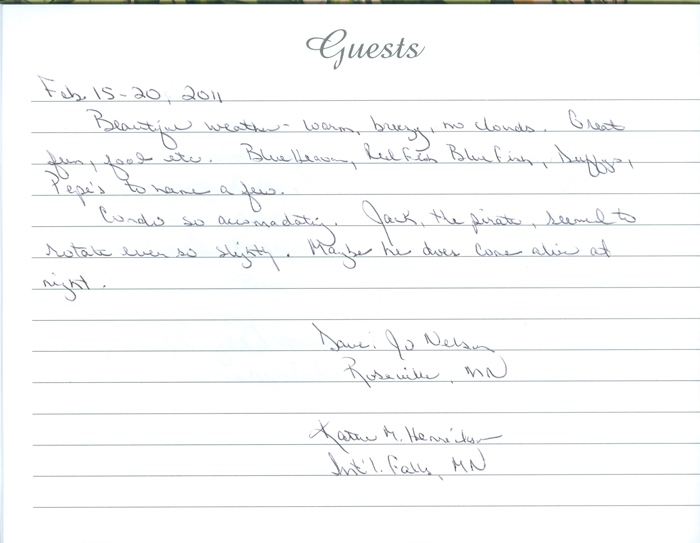 Guests
Feb. 15-20, 2011
Beautiful weather - warm, breezy, no clouds. Great
fun, food etc. Blue Heaven, Red Fish Blue Fish, Duffy's,
Pepe's to name a few.
Condo so accomadating. Jack, the pirate, seemed to
rotate ever so slightly. Maybe he does come alive at
night.
Dave & Jo Nelson
Roseville, MN
Karen M.
Int'l. Falls, MN